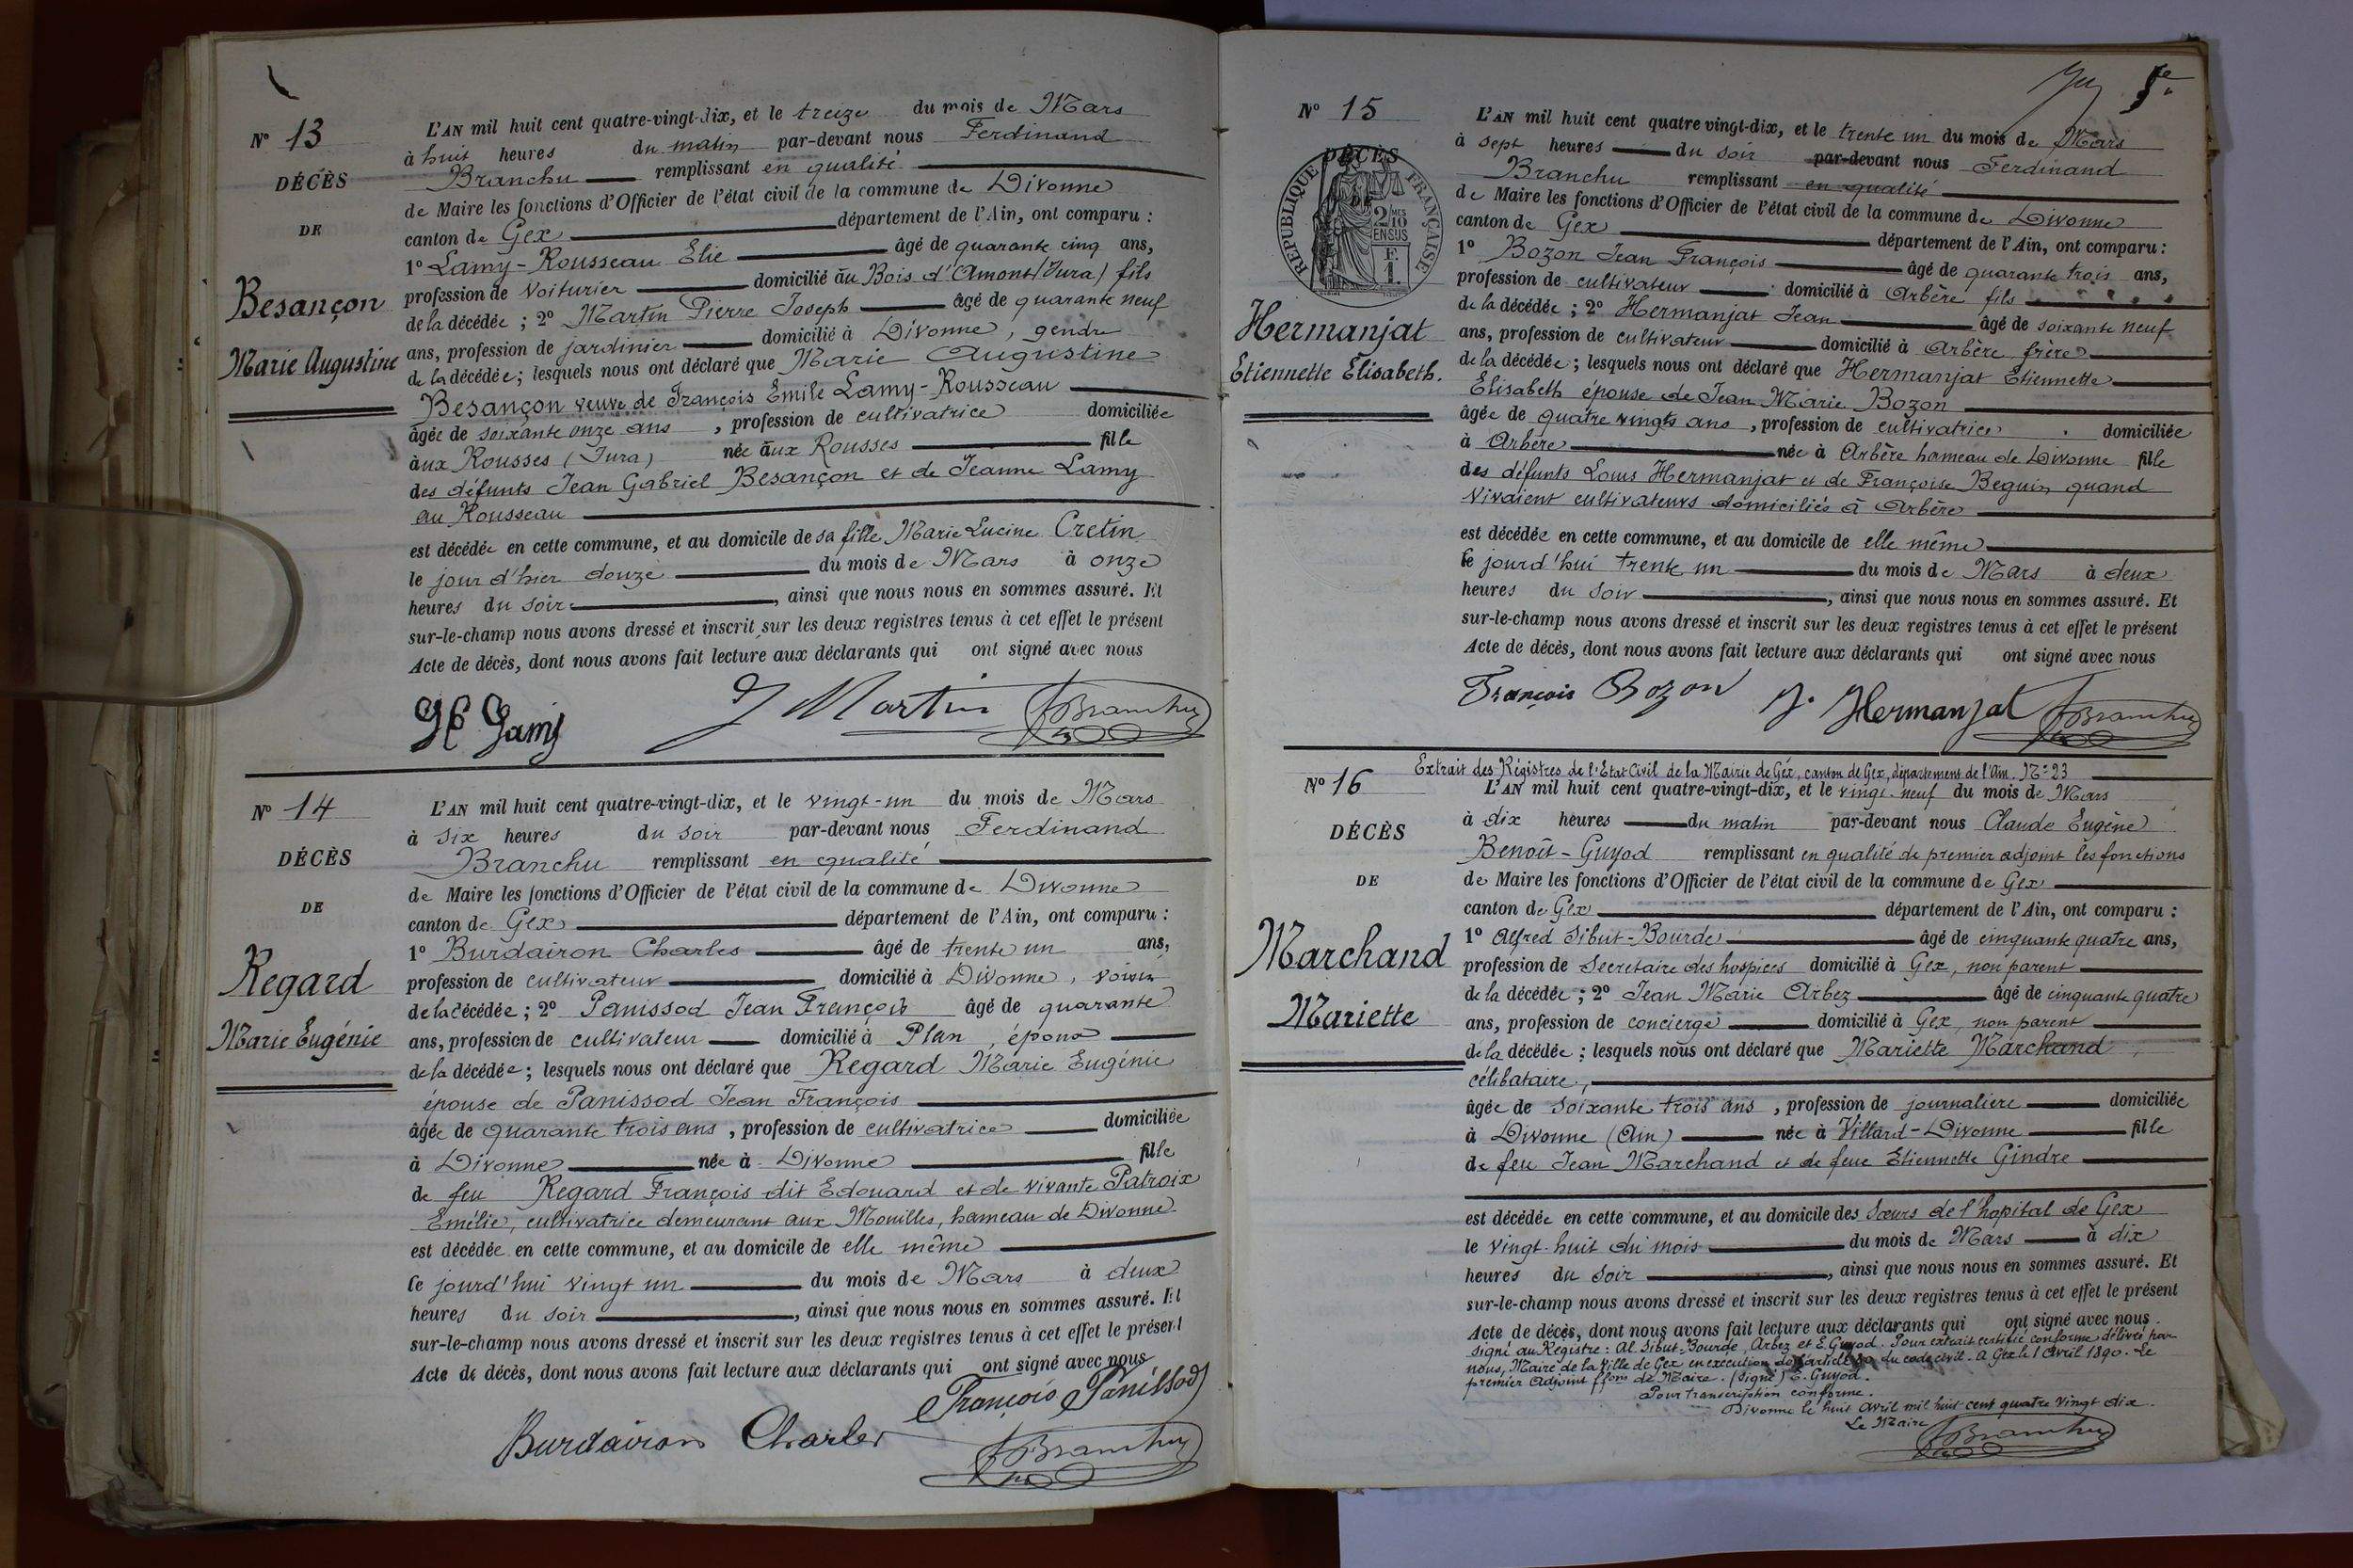 N° 13
DÉCÈS
DE
Besançon
Marie Augustine
L'AN mil huit cent quatre-vingt-dix, et le treize du mois de Mars
à huit heures du matin par-devant nous Ferdinand
Branchu remplissant en qualité
de Maire les fonctions d'Officier de l'état civil de la commune de Divonne
canton de Gex département de l'Ain, ont comparu :
1° Lamy-Rousseau Elie âgé de quarante cinq ans,
profession de voiturier domicilié au Bois d'Amont (Jura) fils
de la décédée ; 2° Martin Pierre Joseph âgé de quarante neuf
ans, profession de jardinier domicilié à Divonne, gendre
de la décédée ; lesquels nous ont déclaré que Marie Augustine
Besançon veuve de François Emile Lamy-Rousseau
âgée de soixante onze ans, profession de cultivatrice domiciliée
aux Rousses (Jura) née aux Rousses fille
des défunts Jean Gabriel Besançon et de Jeanne Lamy
au Rousseau
est décédée en cette commune, et au domicile de sa fille Marie Lucine Cretin
le jour d'hier douze du mois de Mars à onze
heures du soir, ainsi que nous nous en sommes assuré. Et
sur-le-champ nous avons dressé et inscrit sur les deux registres tenus à cet effet le présent
Acte de décès, dont nous avons fait lecture aux déclarants qui ont signé avec nous
Lamy J Martin Branchu
N° 14
DÉCÈS
DE
Regard
Marie Eugénie
L'AN mil huit cent quatre-vingt-dix, et le vingt-un du mois de Mars
à six heures du soir par-devant nous Ferdinand
Branchu remplissant en qualité
de Maire les fonctions d'Officier de l'état civil de la commune de Divonne
canton de Gex département de l'Ain, ont comparu :
1° Burdairon Charles âgé de trente un ans,
profession de cultivateur domicilié à Divonne, voisin
de la décédée ; 2° Panissod Jean François âgé de quarante
ans, profession de cultivateur domicilié à Plan, époux
de la décédée ; lesquels nous ont déclaré que Regard Marie Eugénie
épouse de Panissod Jean François
âgée de quarante trois ans, profession de cultivatrice domiciliée
à Divonne née à Divonne fille
de feu Regard François dit Edouard et de vivante Patroix
Emélie, cultivatrice demeurant aux Mouilles, hameau de Divonne
est décédée en cette commune, et au domicile de elle même
ce jourd'hui vingt un du mois de Mars à deux
heures du soir, ainsi que nous nous en sommes assuré. Et
sur-le-champ nous avons dressé et inscrit sur les deux registres tenus à cet effet le présent
Acte de décès, dont nous avons fait lecture aux déclarants qui ont signé avec nous
François Panissod
Burdairon Charles Branchu
N° 15
DÉCÈS
DE
RÉPUBLIQUE FRANÇAISE
2/10 MES
EN SUS
1 F.
Hermanjat
Etiennette Elisabeth.
L'AN mil huit cent quatre vingt-dix, et le trente un du mois de Mars
à sept heures du soir par-devant nous Ferdinand
Branchu remplissant en qualité
de Maire les fonctions d'Officier de l'état civil de la commune de Divonne
canton de Gex département de l'Ain, ont comparu :
1° Bozon Jean François âgé de quarante trois ans,
profession de cultivateur domicilié à Arbère fils
de la décédée ; 2° Hermanjat Jean âgé de soixante neuf
ans, profession de cultivateur domicilié à Arbère frère
de la décédée ; lesquels nous ont déclaré que Hermanjat Etiennette
Elisabeth épouse de Jean Marie Bozon
âgée de quatre vingts ans, profession de cultivatrice domiciliée
à Arbère née à Arbère hameau de Divonne fille
des défunts Louis Hermanjat et de Françoise Beguin quand
vivaient cultivateurs domiciliés à Arbère
est décédée en cette commune, et au domicile de elle même
ce jourd'hui trente un du mois de Mars à deux
heures du soir, ainsi que nous nous en sommes assuré. Et
sur-le-champ nous avons dressé et inscrit sur les deux registres tenus à cet effet le présent
Acte de décès, dont nous avons fait lecture aux déclarants qui ont signé avec nous
François Bozon J. Hermanjat Branchu
N° 16
DÉCÈS
DE
Marchand
Mariette
Extrait des Régistres de l'Etat Civil de la Mairie de Gex, canton de Gex, département de l'Ain. N° 23
L'AN mil huit cent quatre-vingt-dix, et le vingt-neuf du mois de Mars
à dix heures du matin par-devant nous Claude Eugène
Benoît-Guyod remplissant en qualité de premier adjoint les fonctions
de Maire les fonctions d'Officier de l'état civil de la commune de Gex
canton de Gex département de l'Ain, ont comparu :
1° Alfred Sibut-Bourde âgé de cinquante quatre ans,
profession de Secrétaire des hospices domicilié à Gex, non parent
de la décédée ; 2° Jean Marie Arbez âgé de cinquante quatre
ans, profession de concierge domicilié à Gex, non parent
de la décédée ; lesquels nous ont déclaré que Mariette Marchand
célibataire,
âgée de soixante trois ans, profession de journalière domiciliée
à Divonne (Ain) née à Villard-Divonne fille
de feu Jean Marchand et de feue Etiennette Gindre
est décédée en cette commune, et au domicile des Sœurs de l'hopital de Gex
le vingt-huit du mois du mois de Mars à dix
heures du soir, ainsi que nous nous en sommes assuré. Et
sur-le-champ nous avons dressé et inscrit sur les deux registres tenus à cet effet le présent
Acte de décès, dont nous avons fait lecture aux déclarants qui ont signé avec nous.
Signé au Registre : Al. Sibut-Bourde, Arbez et E. Guyod. Pour extrait certifié conforme délivré par
nous, Maire de la Ville de Gex en exécution de l'article 80 du code civil. A Gex le 1 Avril 1890. Le
premier Adjoint ffons de Maire. (Signé) E. Guyod.
Pour transcription conforme.
Divonne le huit Avril mil huit cent quatre vingt dix.
Le Maire
Branchu